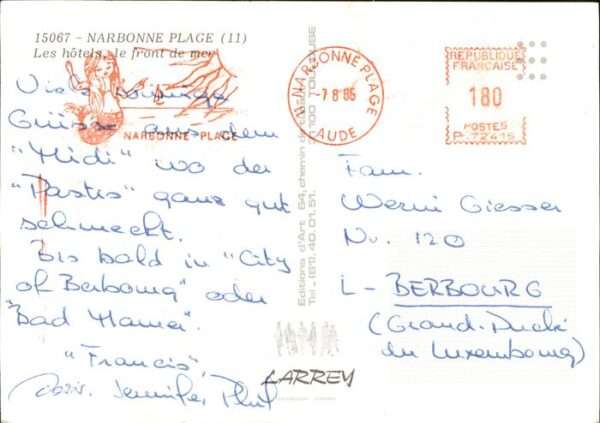 15067 - NARBONNE PLAGE (11)
Les hôtels, le front de mer
Viele sonnige
Grüsse aus dem
"Midi" wo der
"Pastis" ganz gut
schmeckt.
Bis bald in "City
of Berbourg" oder
"Bad Mamer".
"Francis",
Jennifer
NARBONNE-PLAGE
11-NARBONNE PLAGE
-7 8 85
AUDE
REPUBLIQUE
FRANCAISE
180
POSTES
P. 72415
Editions d'Art
64, chemin de
31100 TOULOUSE
Tél. (61) 40.01.51.
LARREY
Fam.
Giesser
Nr. 120
L - BERBOURG
(Grand-Duché
du Luxembourg)